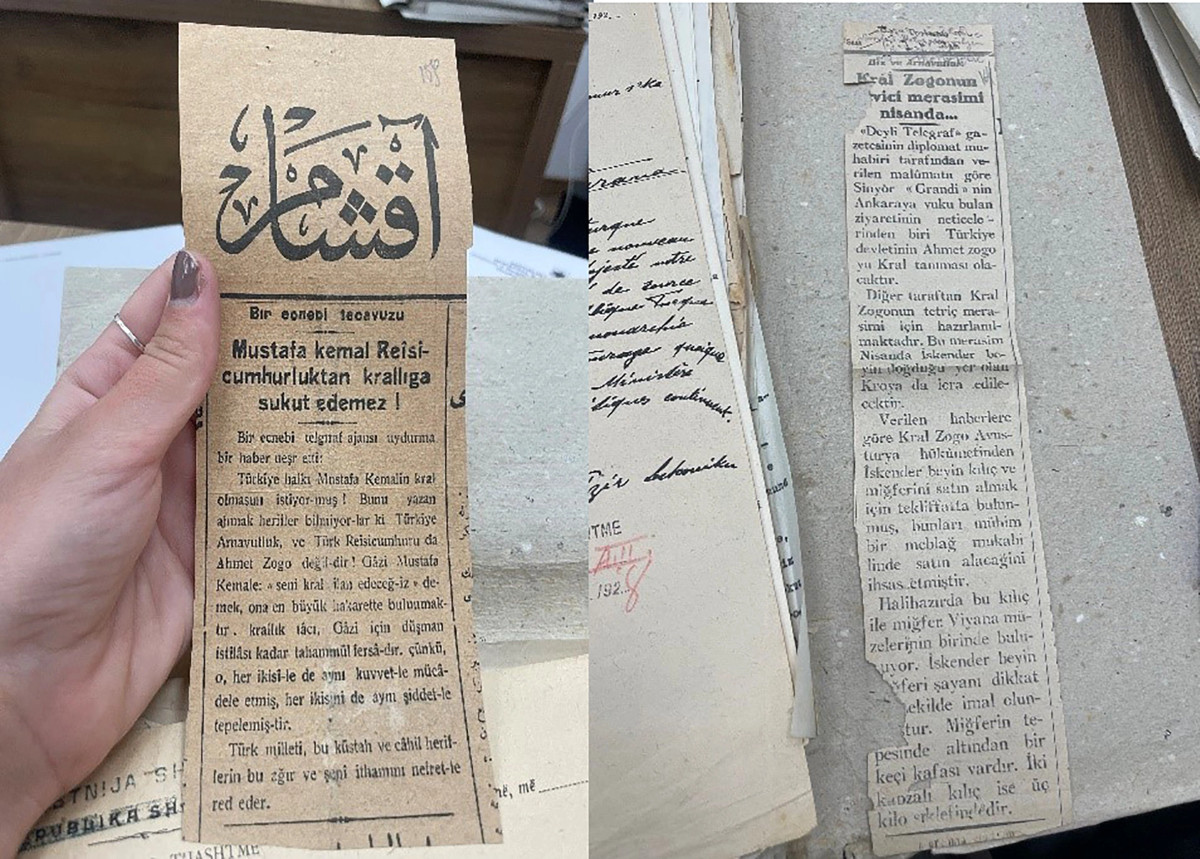 158
آقشام
Bir ecnebi tecavuzu
Mustafa kemal Reisi-
cumhurluktan krallıga
sukut edemez !
Bir ecnebi telgraf ajansı uydurma
bir haber neşr etti:
Türkiye halkı Mustafa Kemalin kral
olmasını istiyor-muş ! Bunu yazan
ahmak herifler bilmiyor-lar ki Türkiye
Arnavutluk, ve Türk Reisicumhuru da
Ahmet Zogo değil-dir! Gâzi Mustafa
Kemale: « seni kral ilan edeceğ-iz » de-
mek, ona en büyük hakarette bulunmak-
tır. krallık tâcı, Gâzi için düşman
istilâsı kadar tahammül fersâ-dır. çünkü,
o, her ikisi-le de aynı kuvvet-le mücâ-
dele etmiş, her ikisini de aynı şiddet-le
tepelemiş-tir.
Türk milleti, bu küstah ve câhil herif-
lerin bu ağır ve şeni ithamını nefret-le
red eder.
PUBLIKA SH
në, më
192
turque
nouveau
notre
de source
Turque
monarchie
quelque
Ministère
continuent.
TME
192
8
Biz ve Arnavutluk
Kral Zogonun
vici merasimi
nisanda...
«Deyli Telegraf» ga-
zetesinin diplomat mu-
habiri tarafından ve-
rilen malûmata göre
Sinyör «Grandi» nin
Ankaraya vuku bulan
ziyaretinin neticele-
rinden biri Türkiye
devletinin Ahmet zogo
yu Kral tanıması ola-
caktır.
Diğer taraftan Kral
Zogonun tetviç mera-
simi için hazırlanıl-
maktadır. Bu merasim
Nisanda İskender be-
yin doğduğu yer olan
Kroya da icra edile-
cektir.
Verilen haberlere
göre Kral Zogo Avus-
turya hükûmetinden
İskender beyin kılıç ve
miğferini satın almak
için teklifatta bulun-
muş, bunları mühim
bir meblağ mukabi
linde satın alacağını
ihsas etmiştir.
Halihazırda bu kılıç
ile miğfer Viyana mü-
zelerinin birinde bulu-
uyor. İskender beyin
ğferi şayanı dikkat
ekilde imal olun-
tur. Miğferin te-
pesinde altından bir
keçi kafası vardır. İki
kabzalı kılıç ise üç
kilo sıkletindedir.